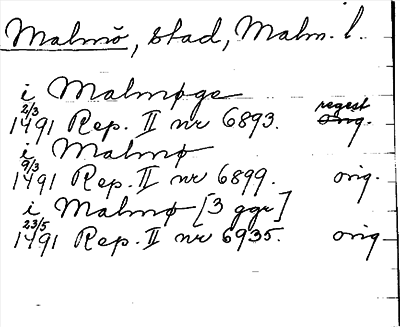 Malmö, stad, Malm. l.
i Malmøge
2/3 1491 Rep. II nr 6893. regest orig.
i Malmø
9/3 1491 Rep. II nr 6899. orig.
i Malmø [3 ggr]
23/5 1491 Rep. II nr 6935. orig